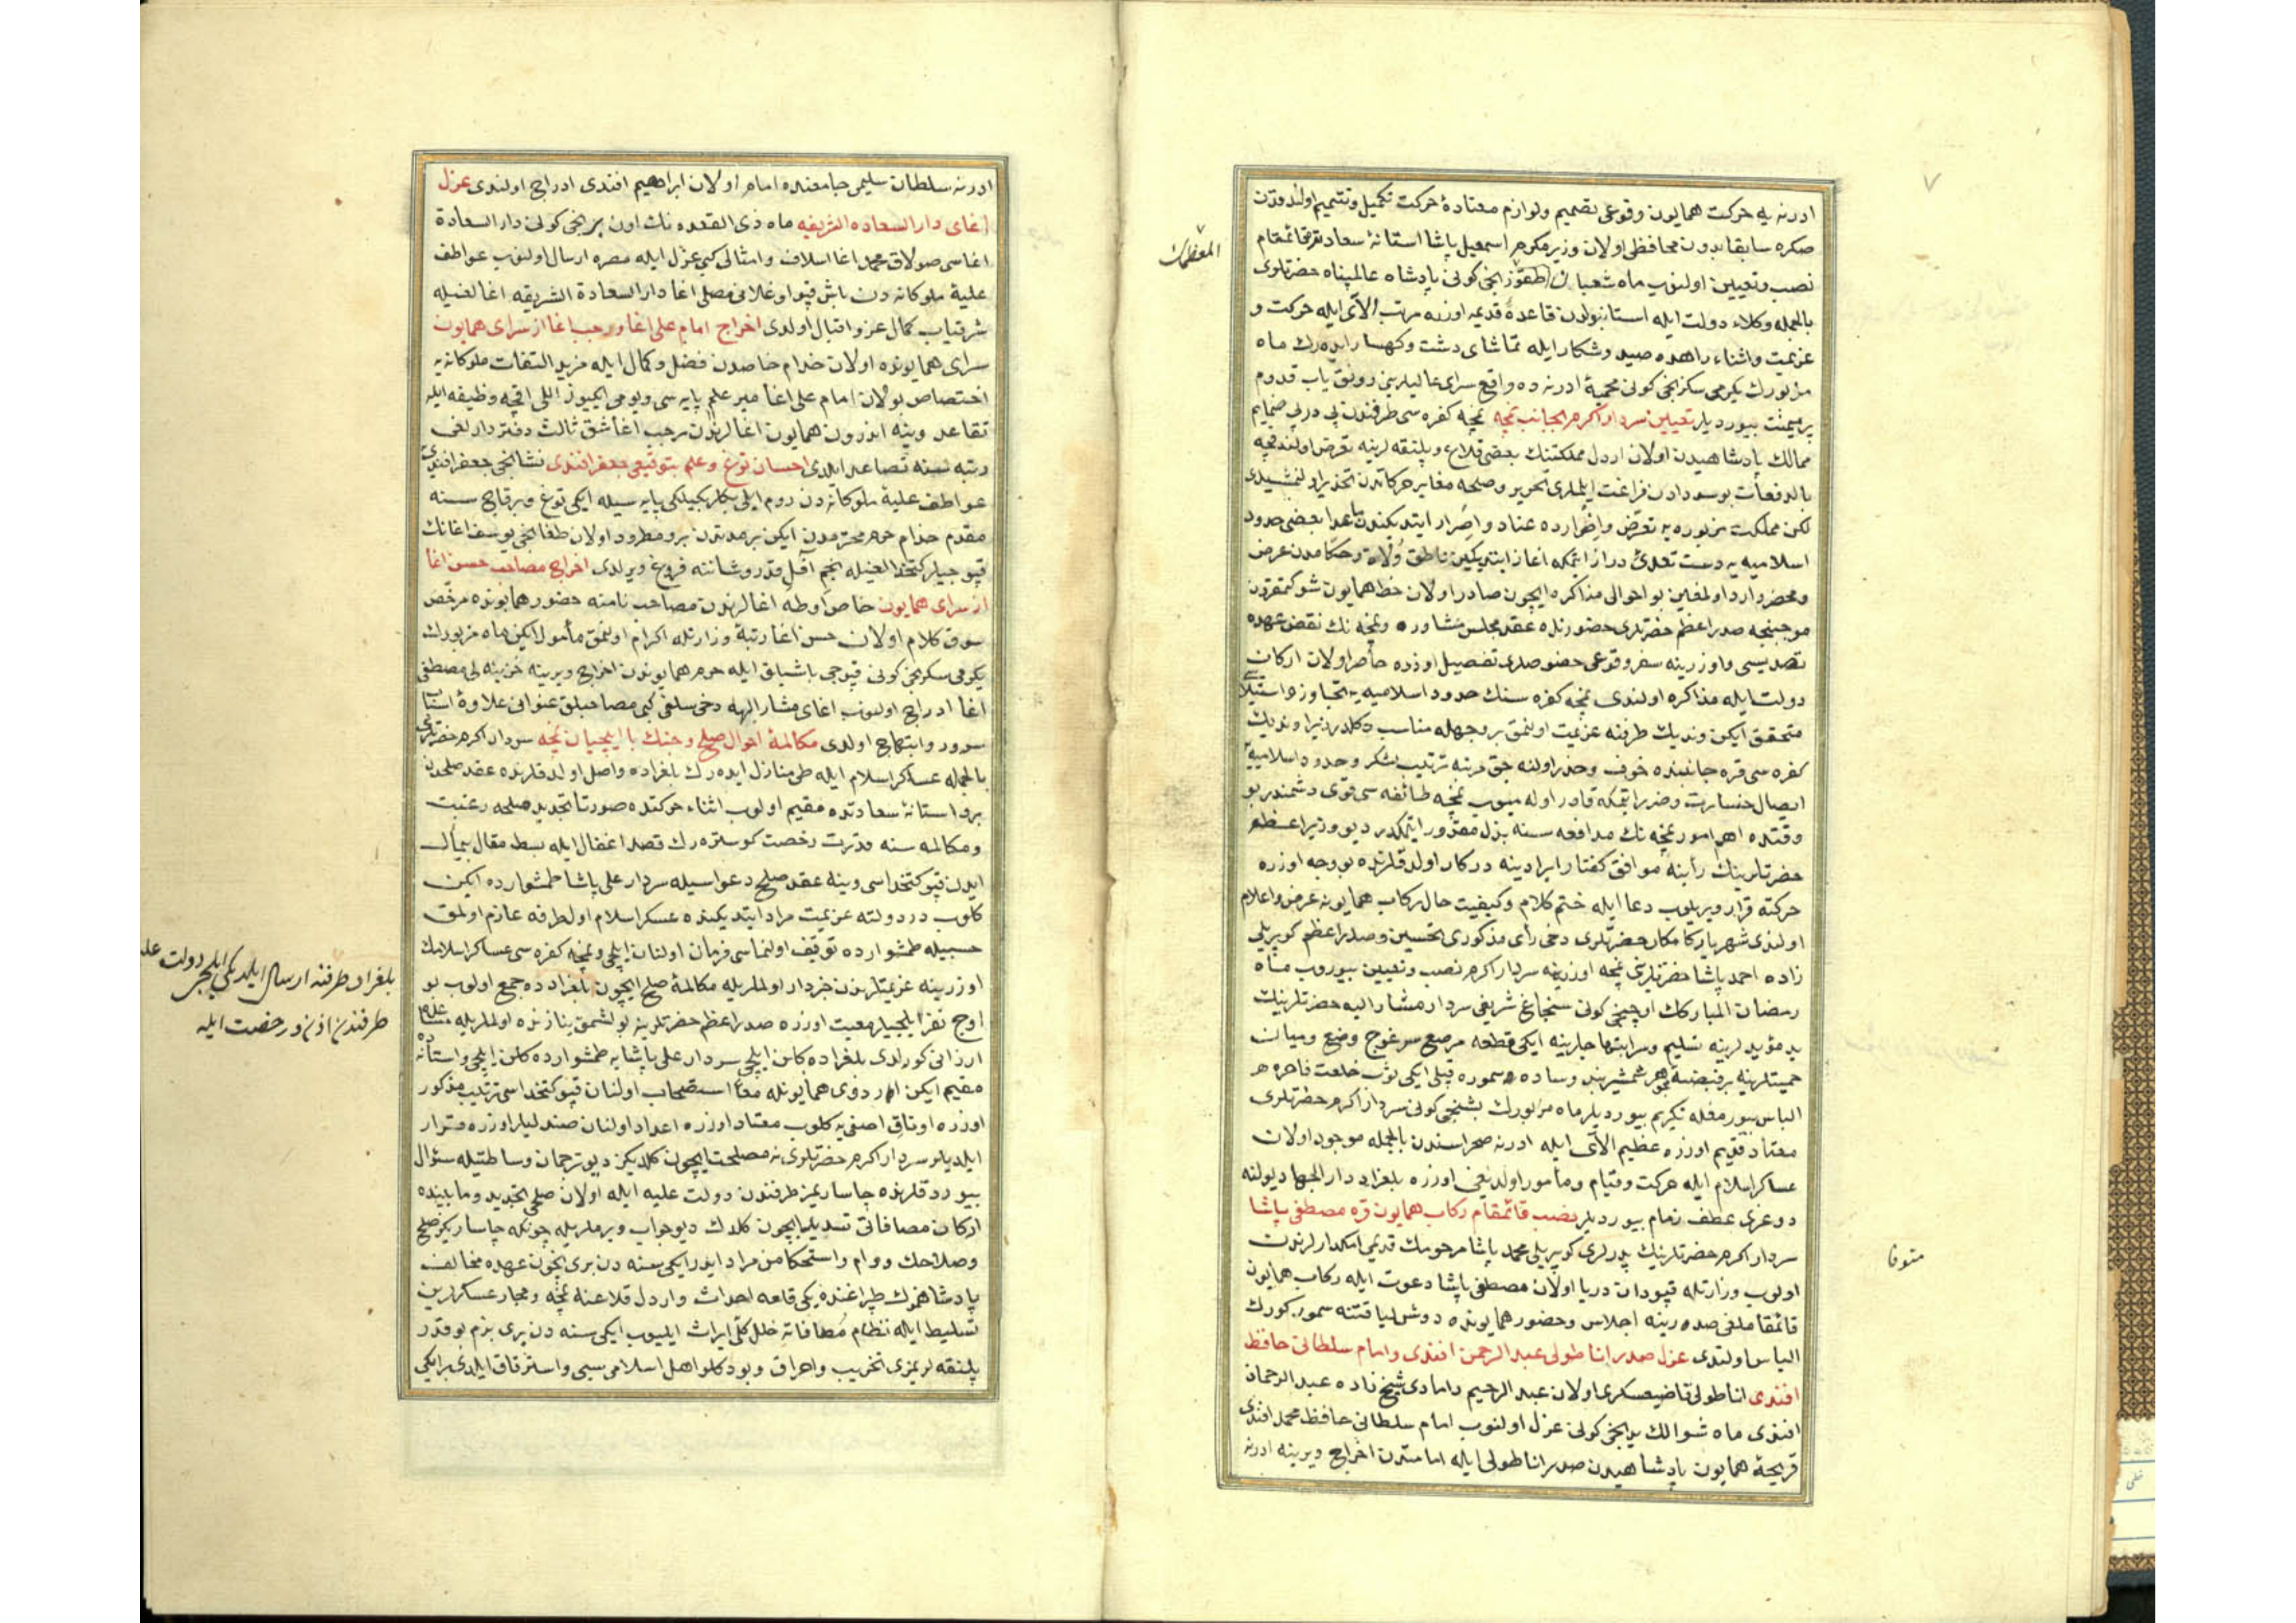 ٧
ادرنه یه حرکت همایون وقوعی تصمیم ولوازم معتادۀ حرکت تکمیل وتتمیم اولندقدن
صکره سابقا بدون محافظی اولان وزیر مکرم اسمعیل پاشا استانۀ سعادته قائمقام
المعظمك
نصب وتعیین اولنوب ماه شعبان طقوزنجی کونی پادشاه عالمپناه حضرتلری
بالجمله وکلاء دولت ایله استانبولدن قاعدۀ قدیمه اوزره مرتب الای ایله حرکت و
عزیمت واثناء راهده صید وشکار ایله تماشای دشت وکهسار ایده رك ماه
مزبورك یکرمی سکزنجی کونی محمیۀ ادرنه ده واقع سرای عالیلرینی رونق یاب قدوم
پر میمنت بیوردیلر تعیین سردار اکرم بجانب نمچه نمچه کفره سی طرفندن پی درپی ضمایم
ممالك پادشاهیدن اولان اردل مملکتنك بعضی قلاع وپلنقه لرینه تعرض اولندیچه
بالدفعات بو سودادن فراغت ایلملری تحریر وصلحه مغایر حرکاتدن تحذیر اولنمشیدی
لکن مملکت مزبوره یه تعرض واضرارده عناد واصرار ایتدیکندن ماعدا بعضی حدود
اسلامیه یه دست تعدی دراز ایتمکه اغاز ایتدیکین ناطق ولاة وحکامدن عرض
ومحضر وارد اولمغین بو احوالی مذاکره ایچون صادر اولان خط همایون شوکتمقرون
موجبنجه صدر اعظم حضرتلری حضورنده عقد مجلس مشاوره ونمچه نك نقض عهده
تصدیسی واوزرینه سفر وقوعی خصوصلری تفصیل اوزره حاضر اولان ارکان
دولت ایله مذاکره اولندی نمچه کفره سنك حدود اسلامیه یه تجاوز واستیلاسی
متحقق ایکن وندیك طرفنه عزیمت اولنمق بر وجهله مناسب دکلدر زیرا وندیك
کفره سی قره جانبنده خوف وحذر اولنه جق مرتبه ترتیب لشکر وحدود اسلامیه یه
ایصال خسارت وضرر ایتمکه قادر اوله میوب نمچه طائفه سی قوی دشمندر بو
وقتده اهم امور نمچه نك مدافعه سنه بذل مقدور ایتمکدر دیو وزیر اعظم
حضرتلرینك رأینه موافق کفتار ایرادینه درکار اولدقلرنده بو وجه اوزره
حرکته قرار ویریلوب دعا ایله ختم کلام وکیفیت حال رکاب همایونه عرض واعلام
اولندی شهریار کامکار حضرتلری دخی رأی مذکوری تحسین وصدر اعظم کوپریلی
زاده احمد پاشا حضرتلرینی نمچه اوزرینه سردار اکرم نصب وتعیین بیوروب ماه
رمضان المبارکك اوچنجی کونی سنجاغ شریفی سردار مشار الیه حضرتلرینك
ید مؤیدلرینه تسلیم وسرابتهاجلرینه ایکی قطعه مرصع سرغوج وضع ومیان
حمیتلرینه بر قبضه مجوهر شمشیر بند وساده وسموره قپلی ایکی ثوب خلعت فاخره هم
الباس بیورمغله تکریم بیوردیلر ماه مزبورك بشنجی کونی سردار اکرم حضرتلری
معتاد قدیم اوزره عظیم الای ایله ادرنه صحراسندن بالجمله موجود اولان
عساکر اسلام ایله حرکت وقیام ومأمور اولدیغی اوزره بلغراد دار الجهاد یولنه
دوغری عطف زمام بیوردیلر نصب قائمقام رکاب همایون قره مصطفی پاشا
سردار اکرم حضرتلرینك پدرلری کوپریلی محمد پاشا مرحومك قدیمی امکدارلرندن
متوفا
اولوب وزارتله قپودان دریا اولان مصطفی پاشا دعوت ایله رکاب همایون
قائمقاملغی صدرینه اجلاس وحضور همایونده دوش لیاقتنه سمور کورك
الباس اولندی عزل صدر اناطولی عبد الرحمن افندی وامام سلطانی حافظ
افندی اناطولی قاضیعسکری اولان عبد الرحیم دامادی شیخ زاده عبد الرحمان
افندی ماه شوالك یدنجی کونی عزل اولنوب امام سلطانی حافظ محمد افندی
قریحۀ همایون پادشاهیدن صدر اناطولی ایله امامتدن اخراج ویرینه ادرنه
ادرنه سلطان سلیم جامعنده امام اولان ابراهیم افندی ادراج اولندی عزل
اغای دار السعاده الشریفه ماه ذی القعده نك اون برنجی کونی دار السعادة
اغاسی صولاق محمد اغا اسلاف وامثالی کبی عزل ایله مصره ارسال اولنوب عواطف
علیۀ ملوکانه دن باش قپو اوغلانی مصلی اغا دار السعادة الشریفه اغالغیله
شرفیاب کمال عز واقبال اولدی اخراج امام علی اغا ورجب اغا از سرای همایون
سرای همایونده اولان خدام خاصدن فضل وکمال ایله مزید التفات ملوکانه یه
اختصاص بولان امام علی اغا میر علم پایه سی ویومی ایکیوز اللی اقچه وظیفه ایله
تقاعد وینه اندرون همایون اغالرندن رجب اغا شق ثالث دفتردارلغی
رتبه سنه تصاعد ایلدی احسان توغ وعلم بتوقیعی جعفر افندی نشانجی جعفر افندی
عواطف علیۀ ملوکانه دن روم ایلی بکلربکیلکی پایه سیله ایکی توغ وبرقاچ سنه
مقدم خدام حرم محترمدن ایکن بر مدتدن برو مطرود اولان طغانجی یوسف اغانك
قپوجیلر کتخدالغیله انجم آفل قدر وشاننه فروغ ویرلدی اخراج مصاحب حسن اغا
از سرای همایون خاص اوطه اغالرندن مصاحب نامنه حضور همایونده مرخص
سوق کلام اولان حسن اغا رتبۀ وزارتله اکرام اولنمق مأمول ایکن ماه مزبورك
یکرمی سکزنجی کونی قپوجی باشیلق ایله حرم همایوندن اخراج ویرینه خزینه لی مصطفی
اغا ادراج اولنوب اغای مشار الیهه دخی سلفی کبی مصاحبلق عنوانی علاوۀ اسباب
سرور وابتهاج اولدی مکالمۀ احوال صلح وجنك با ایلچیان نمچه سردار اکرم حضرتلری
بالجمله عساکر اسلام ایله طی منازل ایده رك بلغراده واصل اولدقلرنده عقد صلحدن
برو استانۀ سعادتده مقیم اولوب اثناء حرکتده صورتا تجدید صلحه رغبت
ومکالمه سنه قدرت رخصت کوستره رك قصد اغفال ایله بسط مقال بیمآل
ایدن قپو کتخداسی وینه عقد صلح دعواسیله سردار علی پاشا طمشوارده ایکن
کلوب در دولته عزیمت مراد ایتدیکنده عسکر اسلام اولطرفه عازم اولمق
حسبیله طمشوارده توقیف اولنماسی فرمان اولنان ایلچی ونمچه کفره سی عساکر اسلامك
بلغراد طرفنه ارسال ایلدیکی ایلچیلر دولت علیه
طرفندن اذن ورخصت ایله
اوزرینه عزیمتلرندن خبردار اولملریله مکالمۀ صلح ایچون بلغرادده جمع اولوب بو
اوچ نفر ایلچیلر معیت اوزره صدر اعظم حضرتلرینه بولشمق نیازنده اولملریله مساعده
ارزانی کورلدی بلغراده کلن ایلچی سردار علی پاشایه طمشوارده کلن ایلچی واستانه ده
مقیم ایکن اردوی همایونله معا استصحاب اولنان قپو کتخداسی ترتیب مذکور
اوزره اوتاق اصفی یه کلوب معتاد اوزره اعداد اولنان صندلیلر اوزره قرار
ایلدیلر سردار اکرم حضرتلری نه مصلحت ایچون کلدیکز دیو ترجمان وساطتیله سؤال
بیوردقلرنده چاساریمز طرفندن دولت علیه ایله اولان صلحی تجدید ومابینده
ارکان مصافاتی تسدید ایچون کلدك دیو جواب ویرملریله چونکه چاساریکز صلح
وصلاحك دوام واستحکامن مراد ایدر ایکی سنه دن بری ایچون عهده مخالف
پادشاهمزك طپراغنده یکی قلعه احداث واردل قلاعنه نمچه ومجار عسکرلرین
تسلیط ایله نظام مضافاته خلل کلی ایراث ایلیوب ایکی سنه دن بری بزم بو قدر
پلنقه لریمزی تخریب واحراق وبو دکلو اهل اسلامی سبی واسترقاق ایلدی بر ایکی